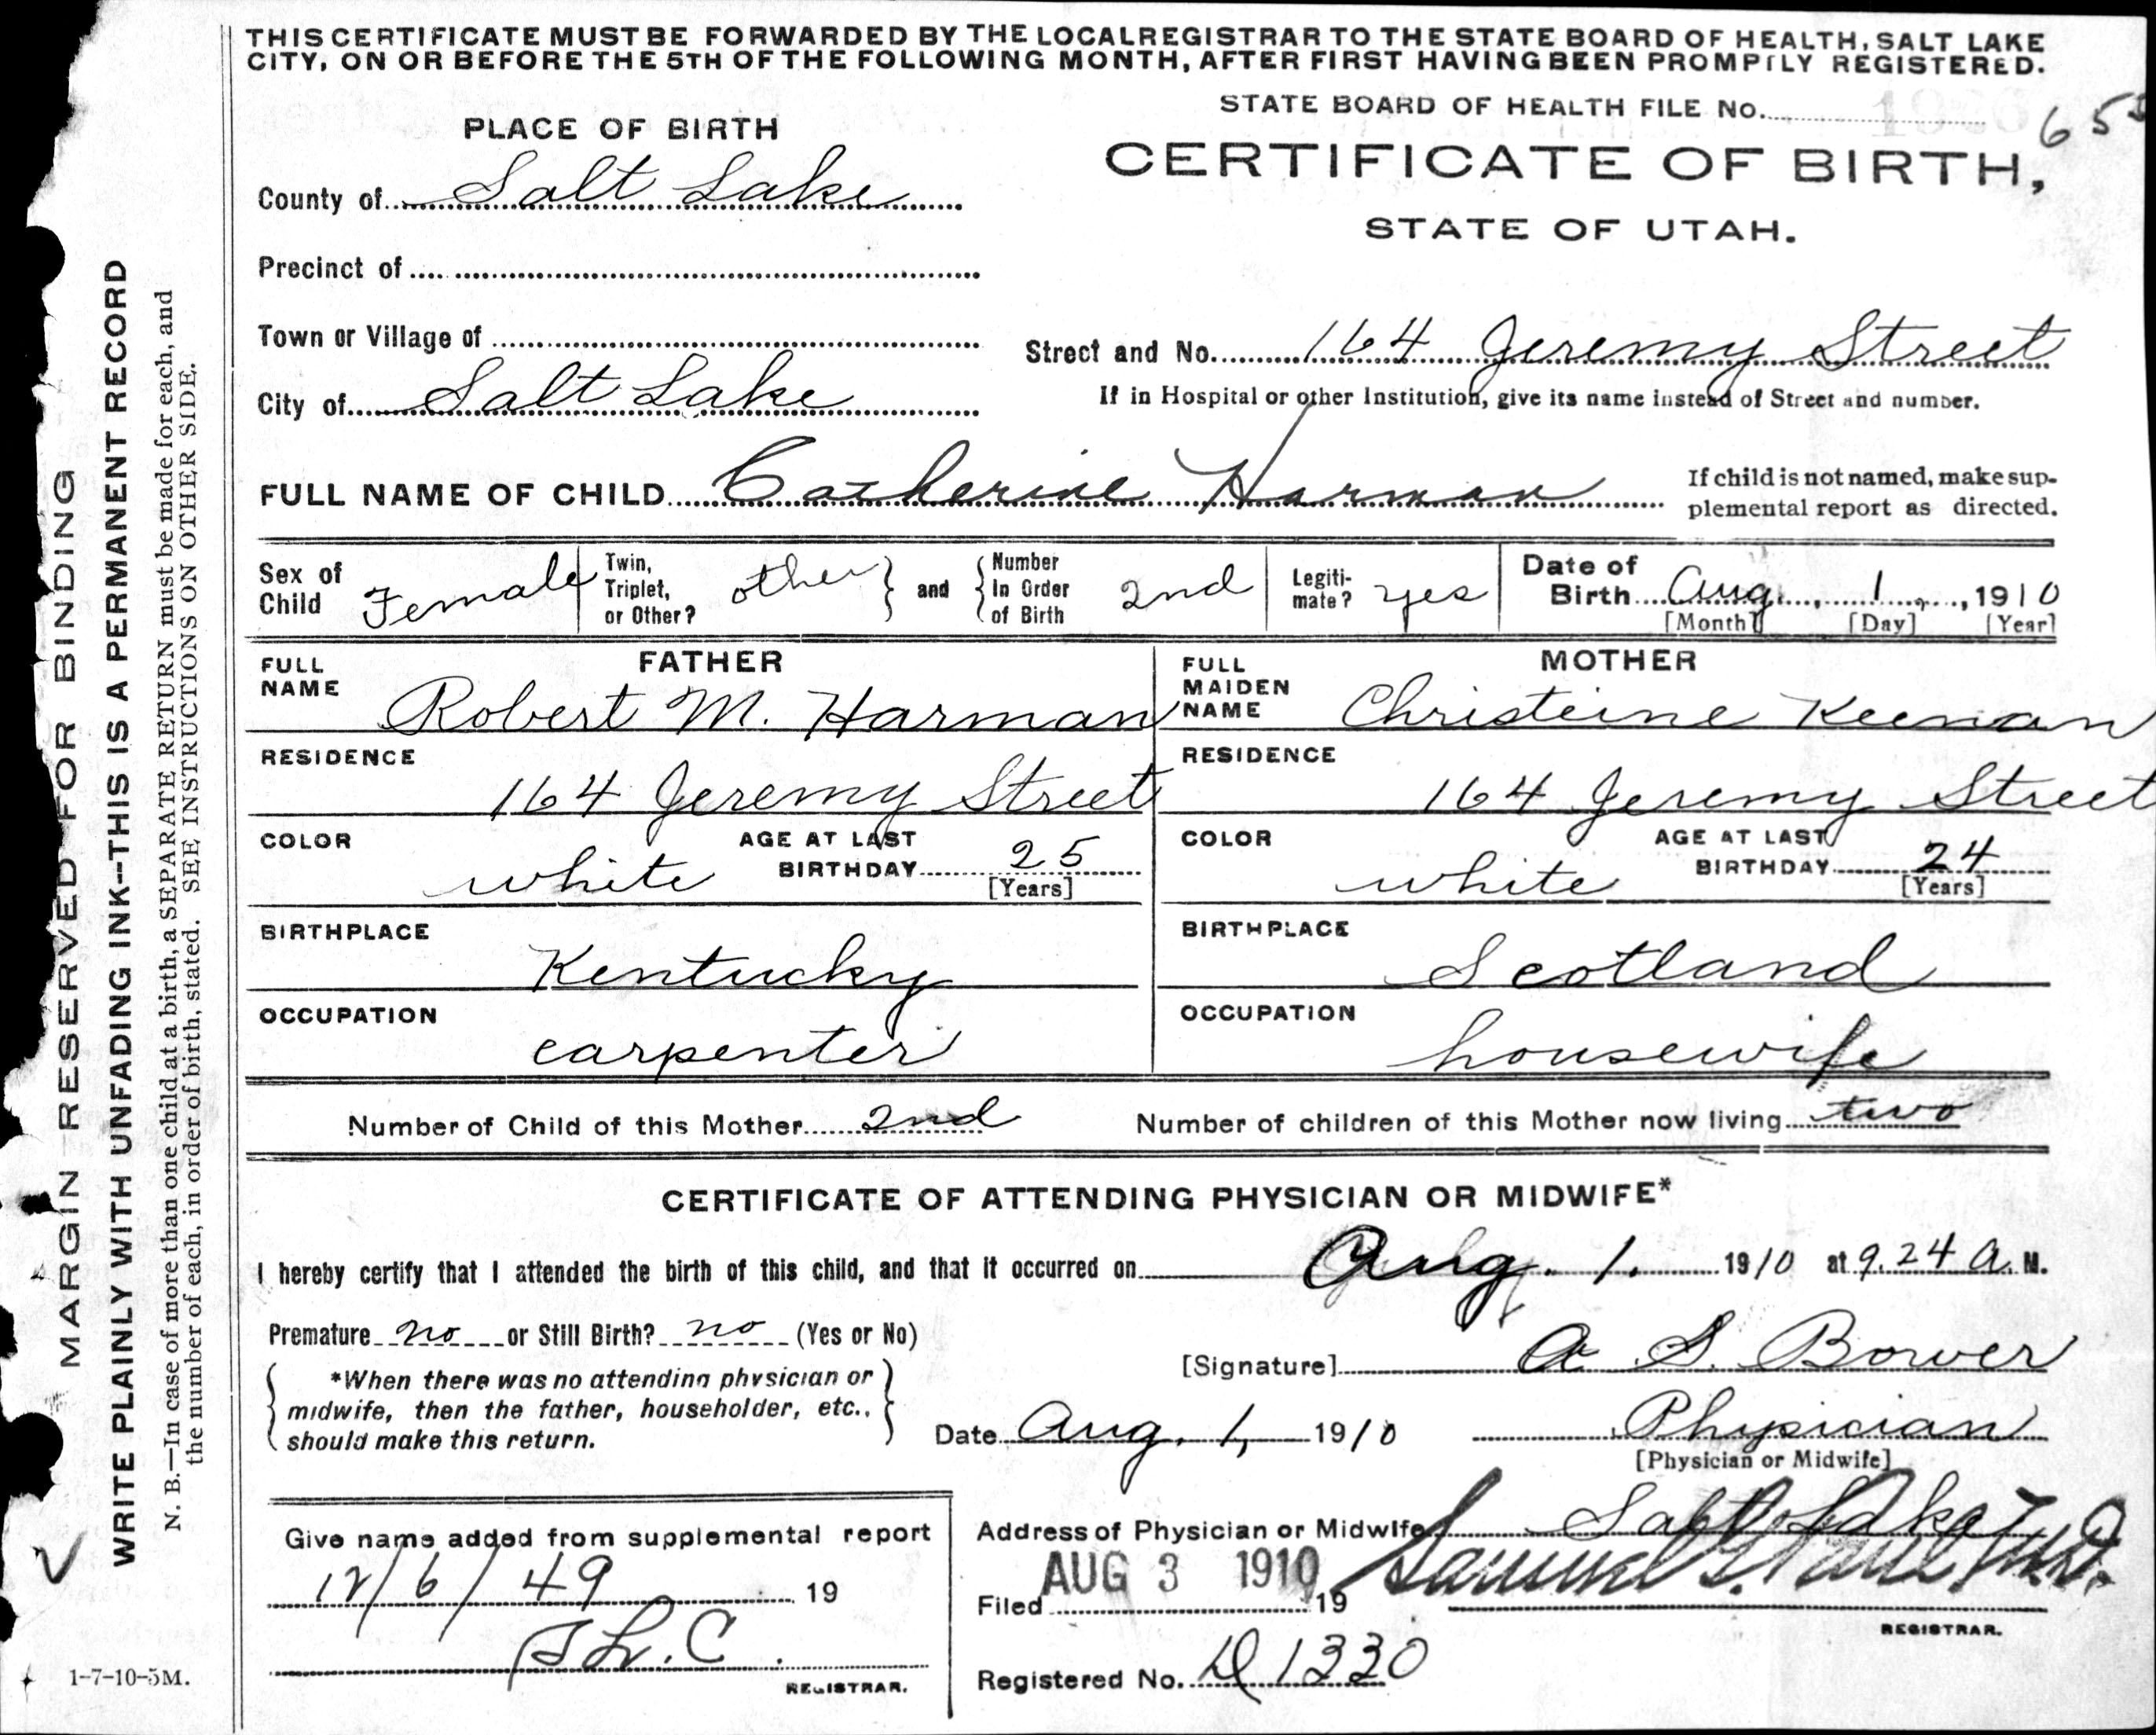 THIS CERTIFICATE MUST BE FORWARDED BY THE LOCAL REGISTRAR TO THE STATE BOARD OF HEALTH, SALT LAKE
CITY, ON OR BEFORE THE 5TH OF THE FOLLOWING MONTH, AFTER FIRST HAVING BEEN PROMPTLY REGISTERED.
STATE BOARD OF HEALTH FILE No.
PLACE OF BIRTH
CERTIFICATE OF BIRTH,
STATE OF UTAH.
County of Salt Lake
Precinct of
Town or Village of
Street and No. 164 Jeremy Street
City of Salt Lake
If in Hospital or other Institution, give its name instead of Street and number.
FULL NAME OF CHILD Catherine Harman
If child is not named, make sup-
plemental report as directed.
Sex of Child Female
Twin, Triplet, or Other? other
and
Number In Order of Birth 2nd
Legiti-mate? yes
Date of Birth Aug. 1, 1910
[Month] [Day] [Year]
FATHER
FULL NAME Robert M. Harman
RESIDENCE
164 Jeremy Street
COLOR white
AGE AT LAST BIRTHDAY 25
[Years]
BIRTHPLACE
Kentucky
OCCUPATION
carpenter
MOTHER
FULL MAIDEN NAME Christeine Keenan
RESIDENCE
164 Jeremy Street
COLOR white
AGE AT LAST BIRTHDAY 24
[Years]
BIRTHPLACE
Scotland
OCCUPATION
housewife
Number of Child of this Mother 2nd
Number of children of this Mother now living two
CERTIFICATE OF ATTENDING PHYSICIAN OR MIDWIFE*
I hereby certify that I attended the birth of this child, and that it occurred on Aug. 1. 1910 at 9.24 a. M.
Premature no or Still Birth? no (Yes or No)
[Signature] A S. Bower
*When there was no attending physician or
midwife, then the father, householder, etc.,
should make this return.
Date Aug. 1, 1910
Physician
[Physician or Midwife]
Give name added from supplemental report
12/6/49 19
REGISTRAR.
Address of Physician or Midwife Salt Lake
Filed AUG 3 1910 19
Samuel G. Paul M.D.
REGISTRAR.
Registered No. D 1330
MARGIN RESERVED FOR BINDING
WRITE PLAINLY WITH UNFADING INK--THIS IS A PERMANENT RECORD
N. B.—In case of more than one child at a birth, a SEPARATE RETURN must be made for each, and
the number of each, in order of birth, stated. SEE INSTRUCTIONS ON OTHER SIDE.
1-7-10-5M.